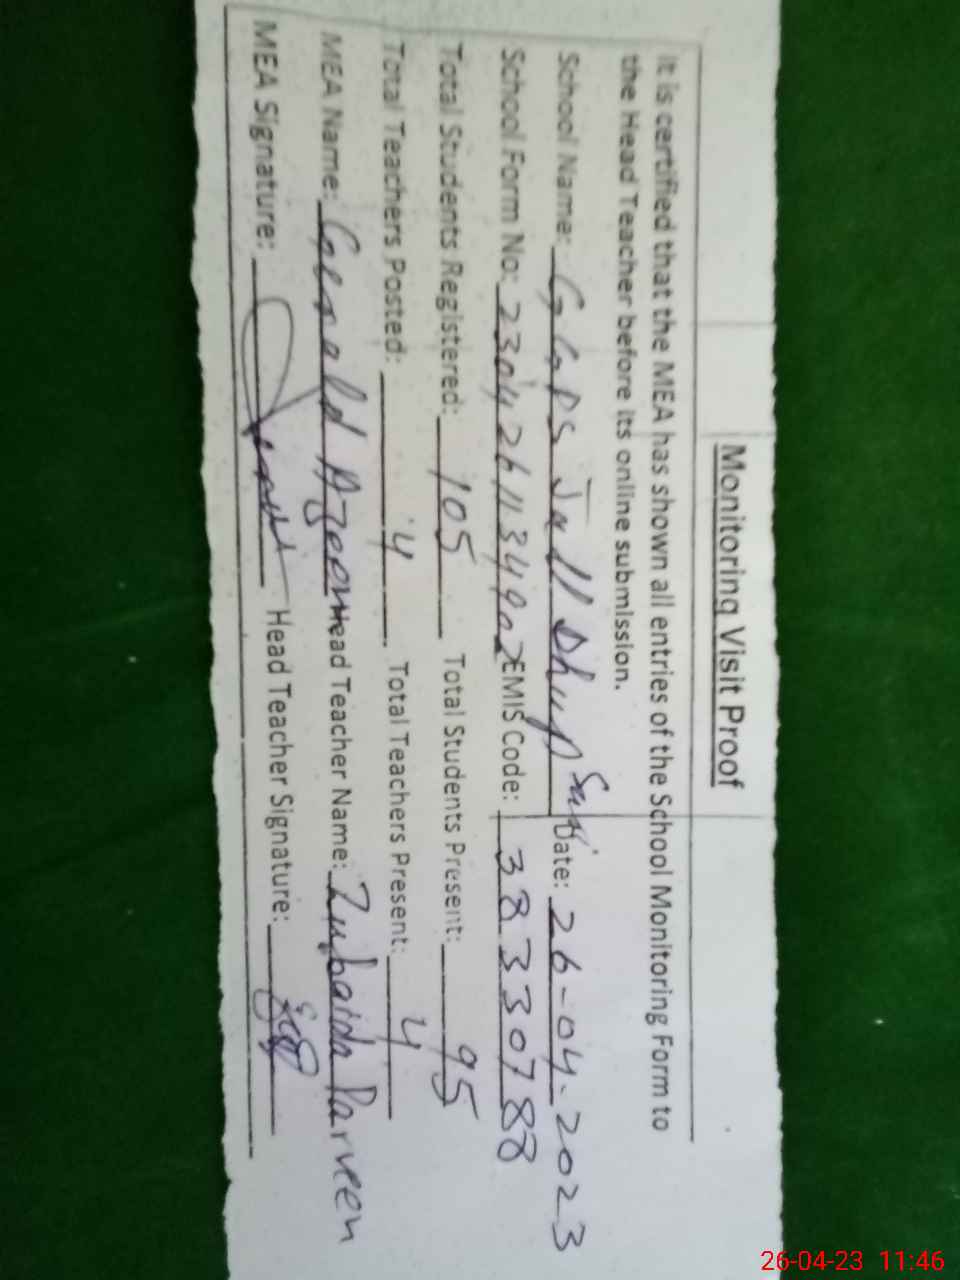 Monitoring Visit Proof
It is certified that the MEA has shown all entries of the School Monitoring Form to
the Head Teacher before its online submission.
School Name: GGPS Jall Dhup Sari Date: 26-04-2023
School Form No: EMIS Code: 38330788
Total Students Registered: 105 Total Students Present: 95
Total Teachers Posted: 4 Total Teachers Present: 4
MEA Name: Gerald Azeem Head Teacher Name: Zubaida Parveen
MEA Signature: Head Teacher Signature:
26-04-23 11:46